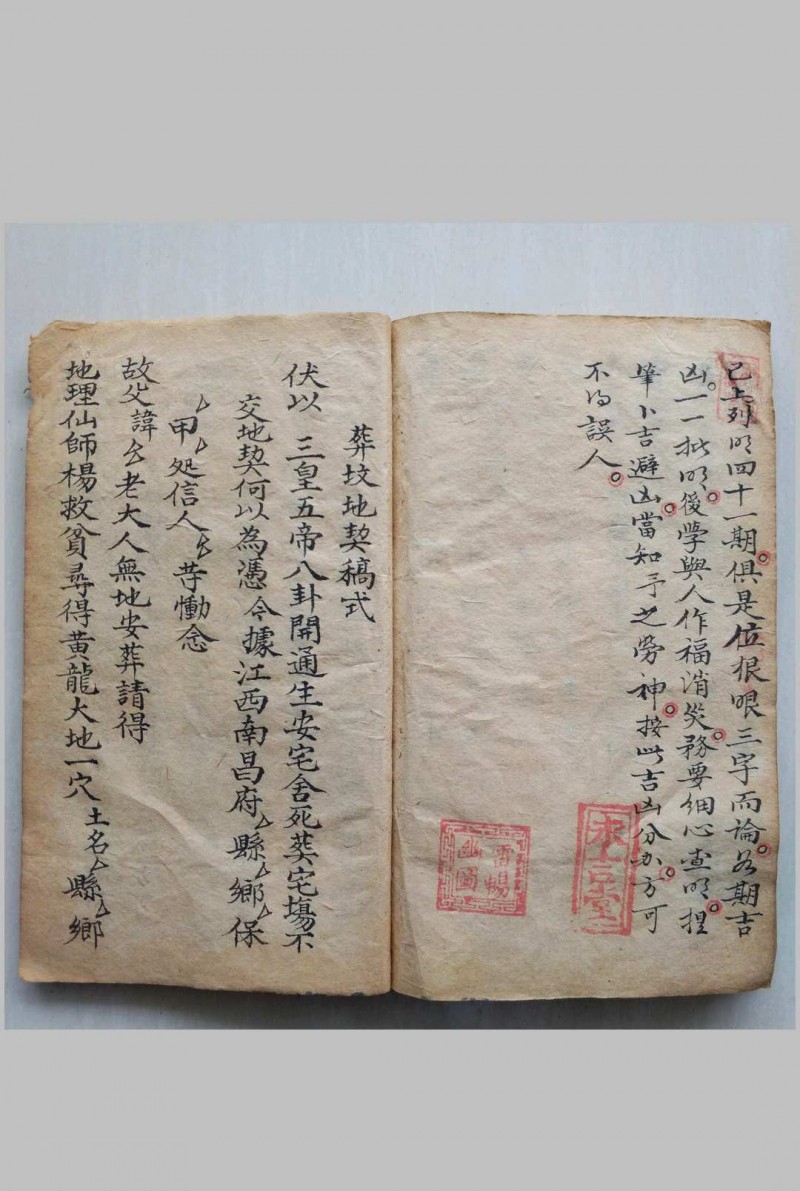 已上列明四十一期。俱是位狠眼三字而論。各期吉
凶。一一批明。後學與人作福消災。務要細心查明。捏
筆卜吉避凶。當知予之勞神。按此吉凶分办。方可
不得誤人。
葬坟地契稿式
伏以 三皇五帝八卦開通生安宅舍死葬宅塲不
交地契何以為憑今據江西南昌府厶縣厶鄉厶保
厶甲厶处信人厶等慟念
故父諱厶老大人無地安葬請得
地理仙師楊救貧尋得黄龍大地一穴土名厶縣厶鄉
永吉堂